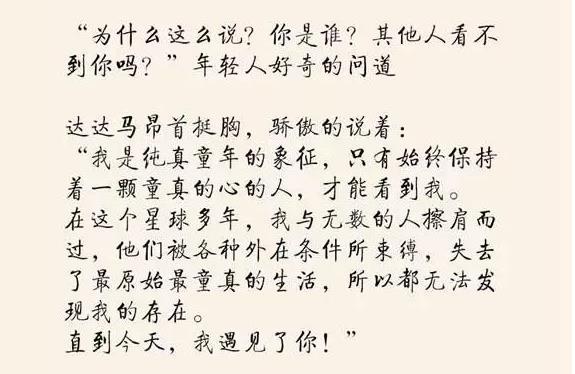 “为什么这么说？你是谁？其他人看不
到你吗？”年轻人好奇的问道
达达马昂首挺胸，骄傲的说着：
“我是纯真童年的象征，只有始终保持
着一颗童真的心的人，才能看到我。
在这个星球多年，我与无数的人擦肩而
过，他们被各种外在条件所束缚，失去
了最原始最童真的生活，所以都无法发
现我的存在。
直到今天，我遇见了你！”